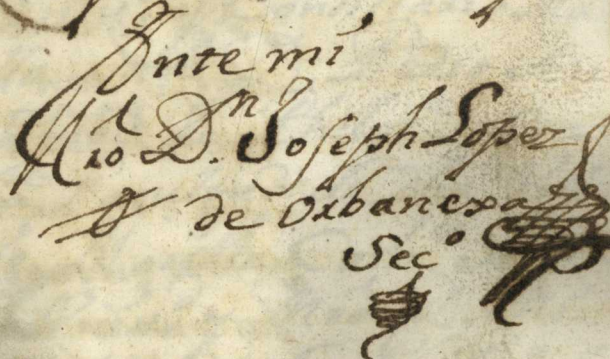 Ante mi
D.n Joseph Lopez
de Orbanexa
Sec.o